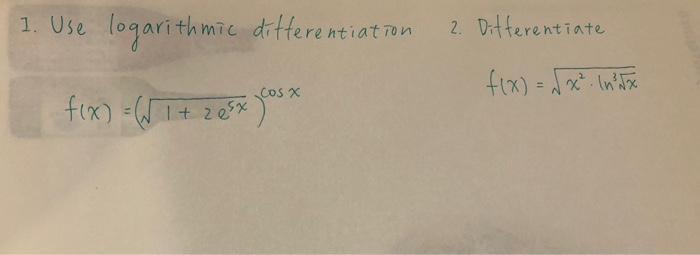 1. Use logarithmic differentiation
f(x) = (√(1 + 2e^(5x)))^(cos x)
2. Differentiate
f(x) = √(x² · ln ∛x)